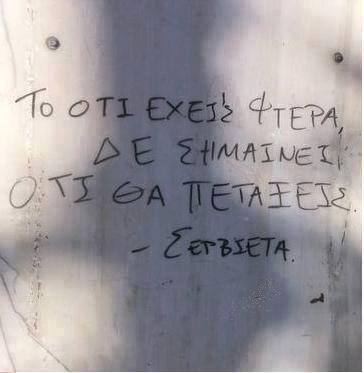 ΤΟ ΟΤΙ ΕΧΕΙΣ ΦΤΕΡΑ,
ΔΕ ΣΗΜΑΙΝΕΙ
ΟΤΙ ΘΑ ΠΕΤΑΞΕΙΣ.
- ΣΕΡΒΙΕΤΑ.